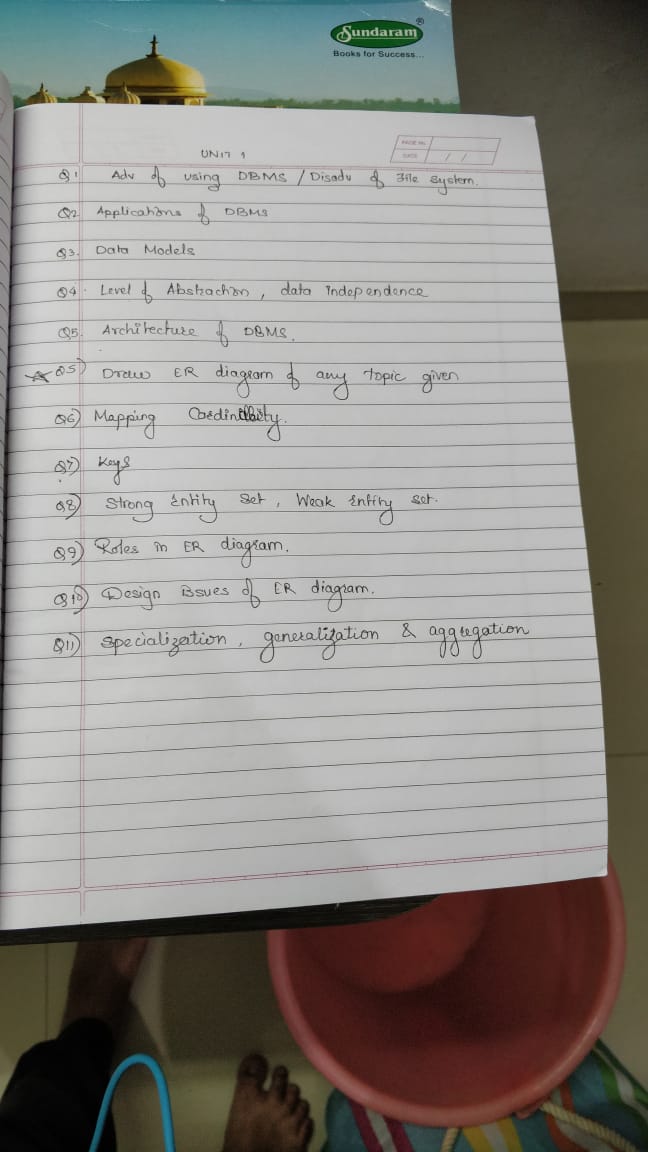 Sundaram
®
Books for Success...
PAGE No.
DATE / /
UNIT 1
Q1 Adv of using DBMS / Disadv of File system.
Q2 Applications of DBMS
Q3. Data Models
Q4. Level of Abstraction, data independence
Q5. Architecture of DBMS.
☆ Q5) Draw ER diagram of any topic given
Q6) Mapping Cardinality.
Q7) Keys
Q8) Strong Entity Set, Weak Entity set.
Q9) Roles in ER diagram.
Q10) Design issues of ER diagram.
Q11) specialization, generalization & aggregation